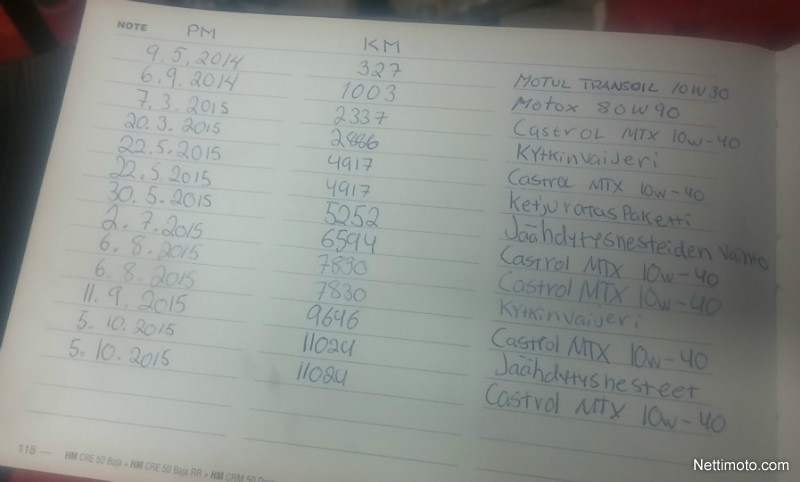 NOTE PM KM
9.5.2014 327 MOTUL TRANSOIL 10W30
6.9.2014 1003 Motox 80W90
7.3.2015 2337 Castrol MTX 10w-40
20.3.2015 2886 Kytkinvaijeri
22.5.2015 4917 Castrol MTX 10w-40
22.5.2015 4917 Ketjuratas Paketti
30.5.2015 5252 Jäähdytysnesteiden Vaihto
2.7.2015 6594 Castrol MTX 10w-40
6.8.2015 7830 Castrol MTX 10w-40
6.8.2015 7830 Kytkinvaijeri
11.9.2015 9646 Castrol MTX 10w-40
5.10.2015 11024 Jäähdytysnesteet
5.10.2015 11024 Castrol MTX 10w-40
118 — HM CRE 50 Baja • HM CRE 50 Baja RR • HM CRM 50
Nettimoto.com